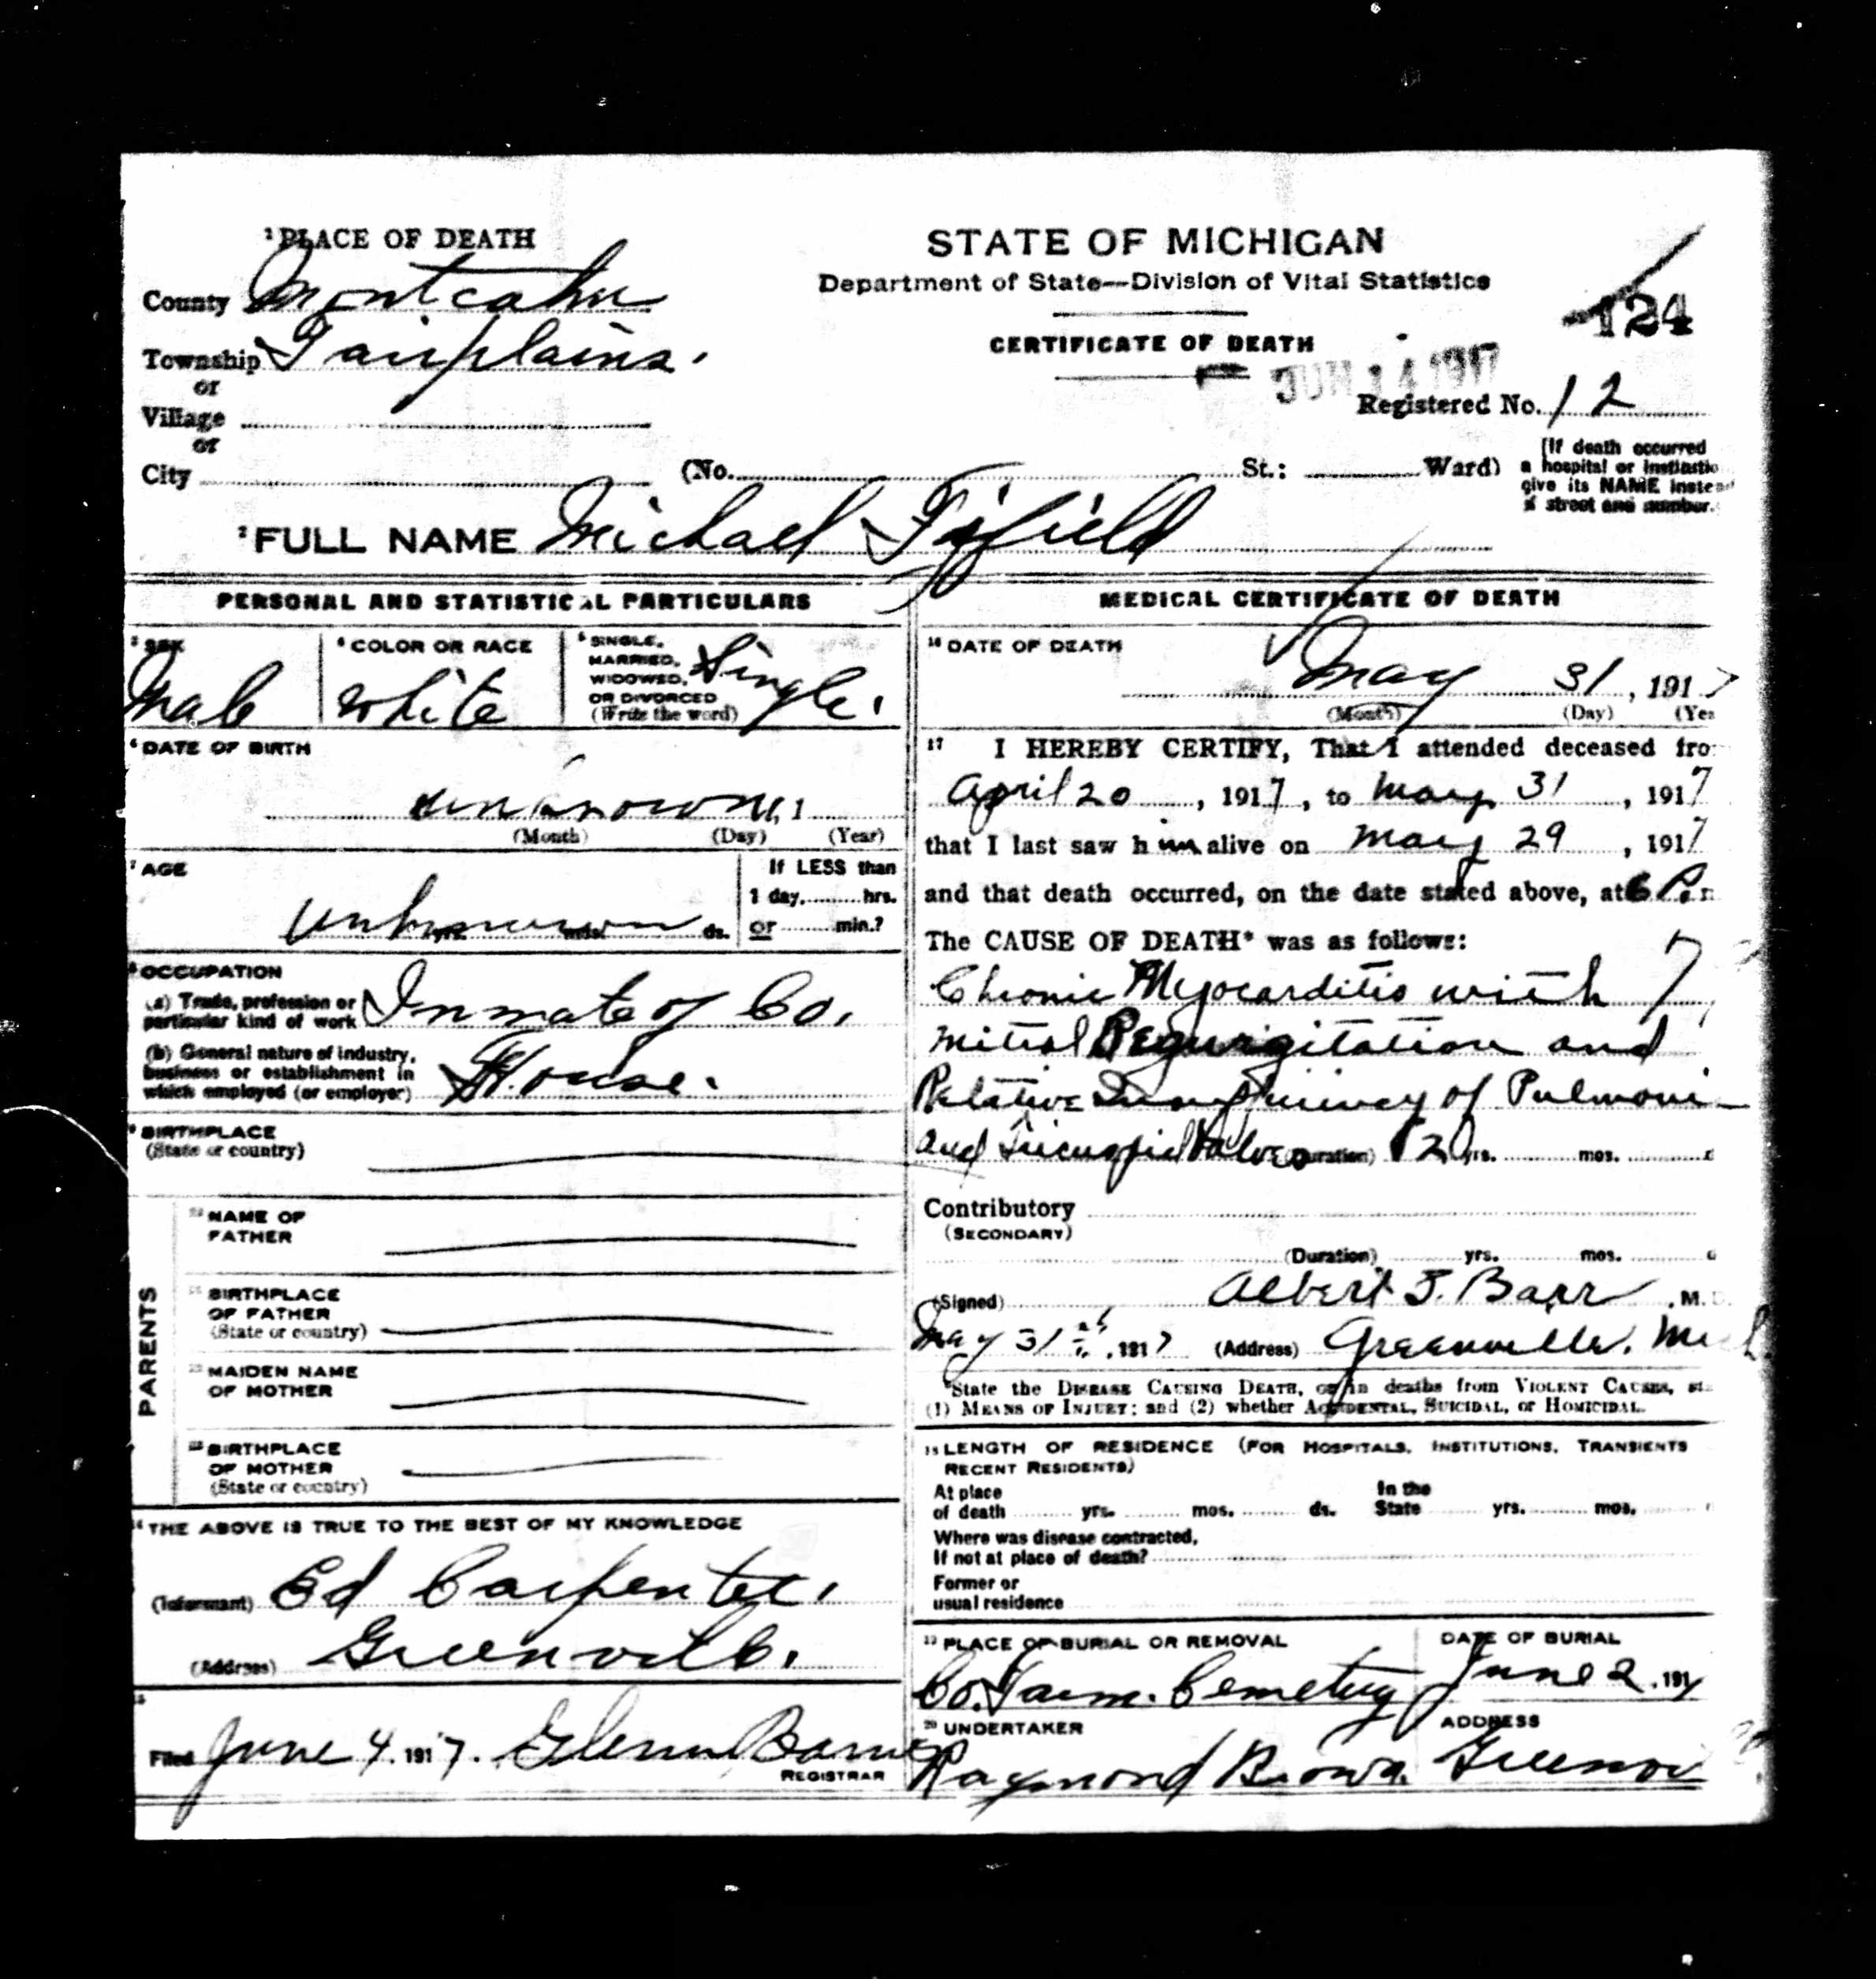 1 PLACE OF DEATH
County Montcalm
Township Fairplains.
or
Village
or
City (No. St.: Ward)
STATE OF MICHIGAN
Department of State—Division of Vital Statistics
CERTIFICATE OF DEATH
124
JUN 14 1917
Registered No. 12
[If death occurred
a hospital or institutio
give its NAME instead
street and number.
2 FULL NAME Michael Fifield
PERSONAL AND STATISTICAL PARTICULARS
3 SEX
Male
4 COLOR OR RACE
White
5 SINGLE,
MARRIED,
WIDOWED,
OR DIVORCED
(Write the word)
Single.
6 DATE OF BIRTH
unknown
(Month) (Day) (Year)
7 AGE
unknown
yrs. mos. ds.
If LESS than
1 day, hrs.
or min.?
8 OCCUPATION
(a) Trade, profession or
particular kind of work Inmate of Co.
(b) General nature of industry,
business or establishment in
which employed (or employer) House.
9 BIRTHPLACE
(State or country)
PARENTS
10 NAME OF
FATHER
11 BIRTHPLACE
OF FATHER
(State or country)
12 MAIDEN NAME
OF MOTHER
13 BIRTHPLACE
OF MOTHER
(State or country)
14 THE ABOVE IS TRUE TO THE BEST OF MY KNOWLEDGE
(Informant) Ed Carpenter.
(Address) Greenville.
15
Filed June 4. 1917. Glenn Barnes
REGISTRAR
MEDICAL CERTIFICATE OF DEATH
16 DATE OF DEATH
May 31, 1917
(Month) (Day) (Yea
17 I HEREBY CERTIFY, That I attended deceased fro
April 20, 1917, to May 31, 1917
that I last saw him alive on May 29, 1917
and that death occurred, on the date stated above, at 6 P. m
The CAUSE OF DEATH* was as follows:
Chronic Myocarditis with
Mitral Regurgitation and
Relative Insufficiency of Pulmoni
and Tricuspid Valves (Duration) 20 yrs. mos.
Contributory
(SECONDARY)
(Duration) yrs. mos.
(Signed) Albert J. Barr, M. D.
May 31st, 1917 (Address) Greenville, Mich
*State the DISEASE CAUSING DEATH, or in deaths from VIOLENT CAUSES, st
(1) MEANS OF INJURY; and (2) whether ACCIDENTAL, SUICIDAL, or HOMICIDAL.
18 LENGTH OF RESIDENCE (FOR HOSPITALS, INSTITUTIONS, TRANSIENTS
RECENT RESIDENTS)
At place
of death yrs. mos. ds.
In the
State yrs. mos.
Where was disease contracted,
If not at place of death?
Former or
usual residence
19 PLACE OF BURIAL OR REMOVAL
Co. Farm. Cemetery
DATE OF BURIAL
June 2, 191
20 UNDERTAKER
Raymond Brown.
ADDRESS
Greenvi